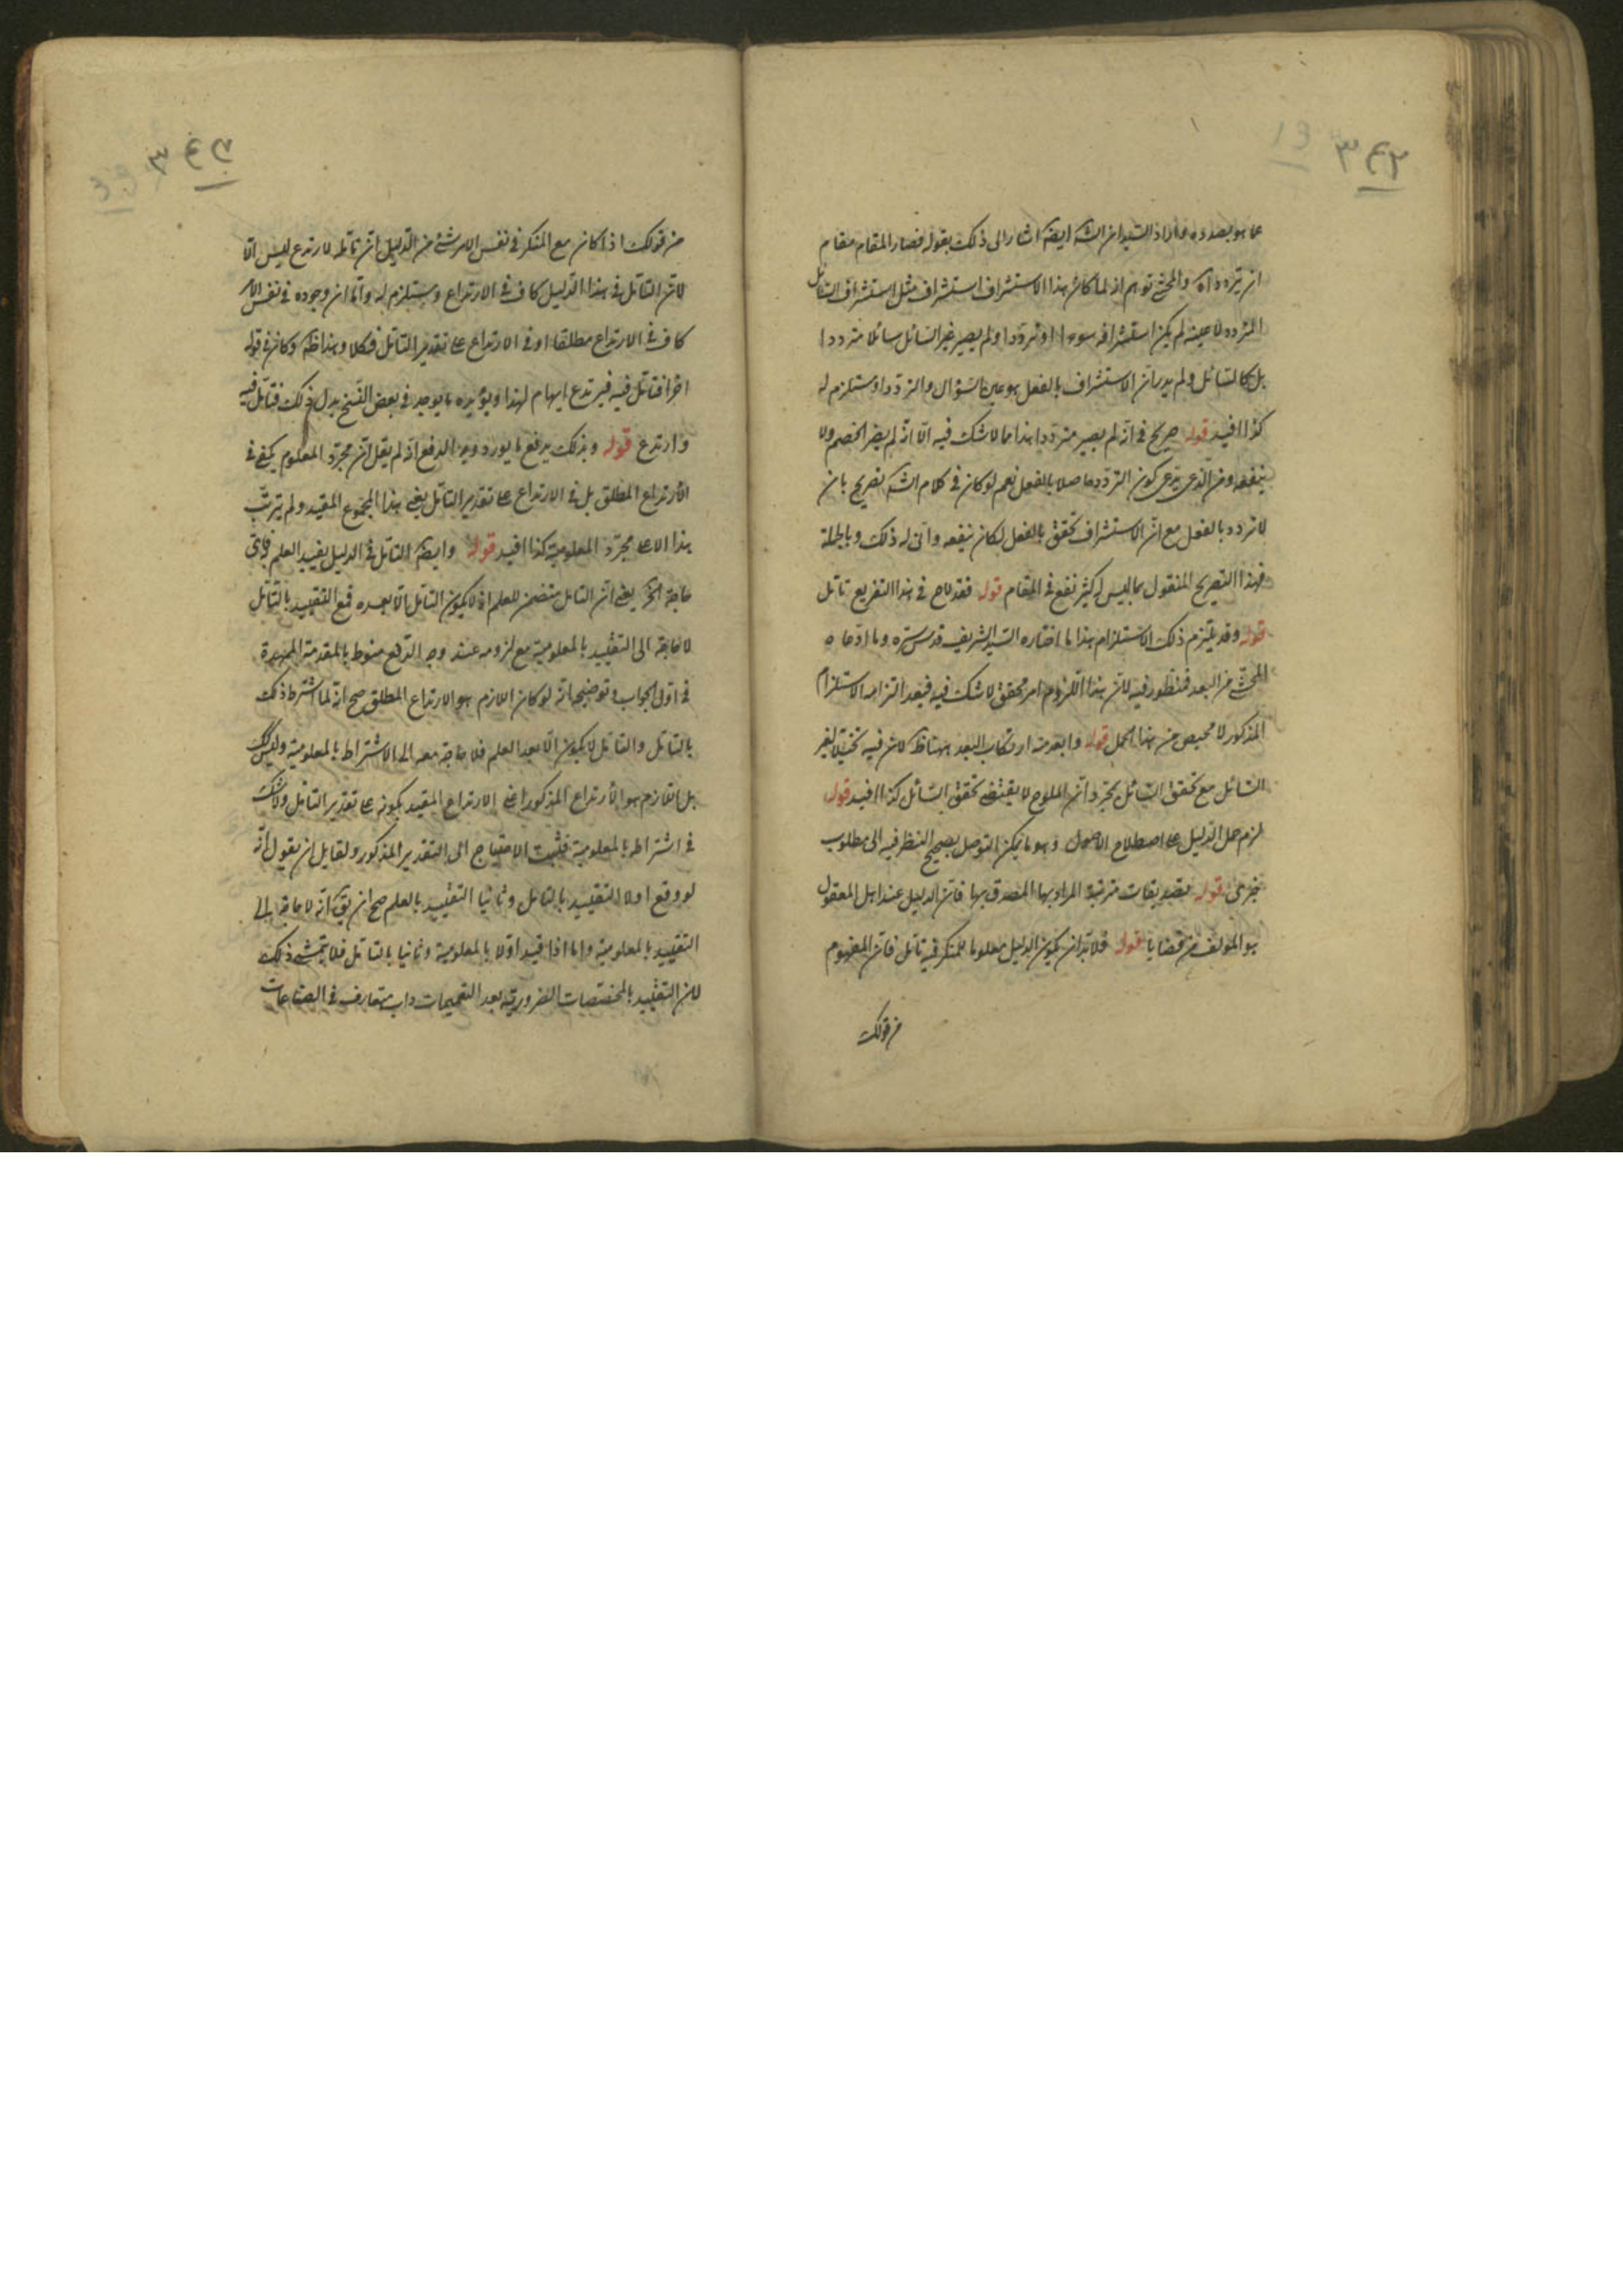 ٣٤٢
13
على ما هو بصدده وأراد السيد ان الشه ايضه اشار الى ذلك بقوله فصار المقام مقام
ان يتردد اه والمحشي توهم انه لما كان هذا الاستشراف استشراف مثل استشراف السائل
المتردد لا عينه لم يكن استشرافه سوءالا او ترددا ولم يصير غير السائل سائلا مترددا
بل كالسائل ولم يدر ان الاستشراف بالفعل هو عين السؤال والتردد او مستلزم له
كذا افيد قوله صريح في انه لم يصير مترددا هذا مما لا شك فيه الا انه لم يضر الخصم ولا
ينفعه ومن الذى يدعى كون التردد حاصلا بالفعل نعم لو كان في كلام الشه تصريح بان
لا تردد بالفعل مع ان الاستشراف تحقق بالفعل لكان ينفعه وانى له ذلك وبالجملة
فهذا التصريح المنقول مما ليس له كثير نفع في المقام قوله فقد لاح في هذا التفريع تامل
قوله وقد يلتزم ذلك الاستلزام هذا ما اختاره السيد الشريف قدس سره وما ادعاه
المحشي من البعد فمنظور فيه لان هذا اللزوم امر محقق لا شك فيه فبعد التزامه الاستلزام
المذكور لا محيص من هذا الحمل قوله وابعد منه ارتكاب البعد ههنا ظه لان فيه تخييلا لغير
السائل مع تحقق السائل بمجرد ان الملوح لا يقتضي تحقق السائل كذا افيد قوله
لزم حمل الدليل على اصطلاح الاصول وهو ما يمكن التوصل بصحيح النظر فيه الى مطلوب
خبرى قوله تصديقات مترتبة المراد بها المصدق بها فان الدليل عند اهل المعقول
هو المؤلف من قضايا قوله فلا بد ان يكون الدليل معلوما للمنكر فيه تامل فان المفهوم
من قولك
٣٤٣
39
من قولك اذا كان مع المنكر في نفس الامر شئ من الدليل ان تامله لارتدع ليس الا
لان التامل في هذا الدليل كاف في الارتداع ومستلزم له واما ان وجوده في نفس الامر
كاف في الارتداع مطلقا او في الارتداع على تقدير التامل فكلا وهذا ظه وكان في قوله
اخرا فتامل فيه فيرتدع ايهام لهذا ويؤيده ما يوجد في بعض النسخ بدل ذلك فتامل فيه
وارتدع قوله وبذلك يرفع ما يورد وجه الدفع انه لم يقل ان مجرد المعلوم يكفي في
الارتداع المطلق بل في الارتداع على تقدير التامل يعني هذا المجموع المقيد ولم يترتب
هذا الا على مجرد المعلومية كذا افيد قوله وايضه التامل في الدليل يفيد العلم فلا يبقى
حاجة الخ يعني ان التامل متضمن للعلم اذ لا يكون التامل الا بعده فمع التقييد بالتامل
لا حاجة الى التقييد بالمعلومية مع لزومه عنده وجه الدفع منوط بالمقدمة الممهدة
في اول الجواب وتوضيحه انه لو كان اللازم هو الارتداع المطلق صح انه لما اشترط ذلك
بالتامل والتامل لا يكون الا بعد العلم فلا حاجة معه الى الاشتراط بالمعلومية وليس كذلك
بل اللازم هو الارتداع المذكور اعني الارتداع المقيد بكونه على تقدير التامل ولا شك
في اشتراطه بالمعلومية فثبت الاحتياج الى التقدير المذكور ولقايل ان يقول انه
لو وقع اولا التقييد بالتامل وثانيا التقييد بالعلم صح ان يق انه لا حاجة الى
التقييد بالمعلومية واما اذا قيد اولا بالمعلومية وثانيا بالتامل فلا يتمشى ذلك
لان التقييد بالمخصصات الضرورية بعد التعميمات داب متعارف في الصناعات